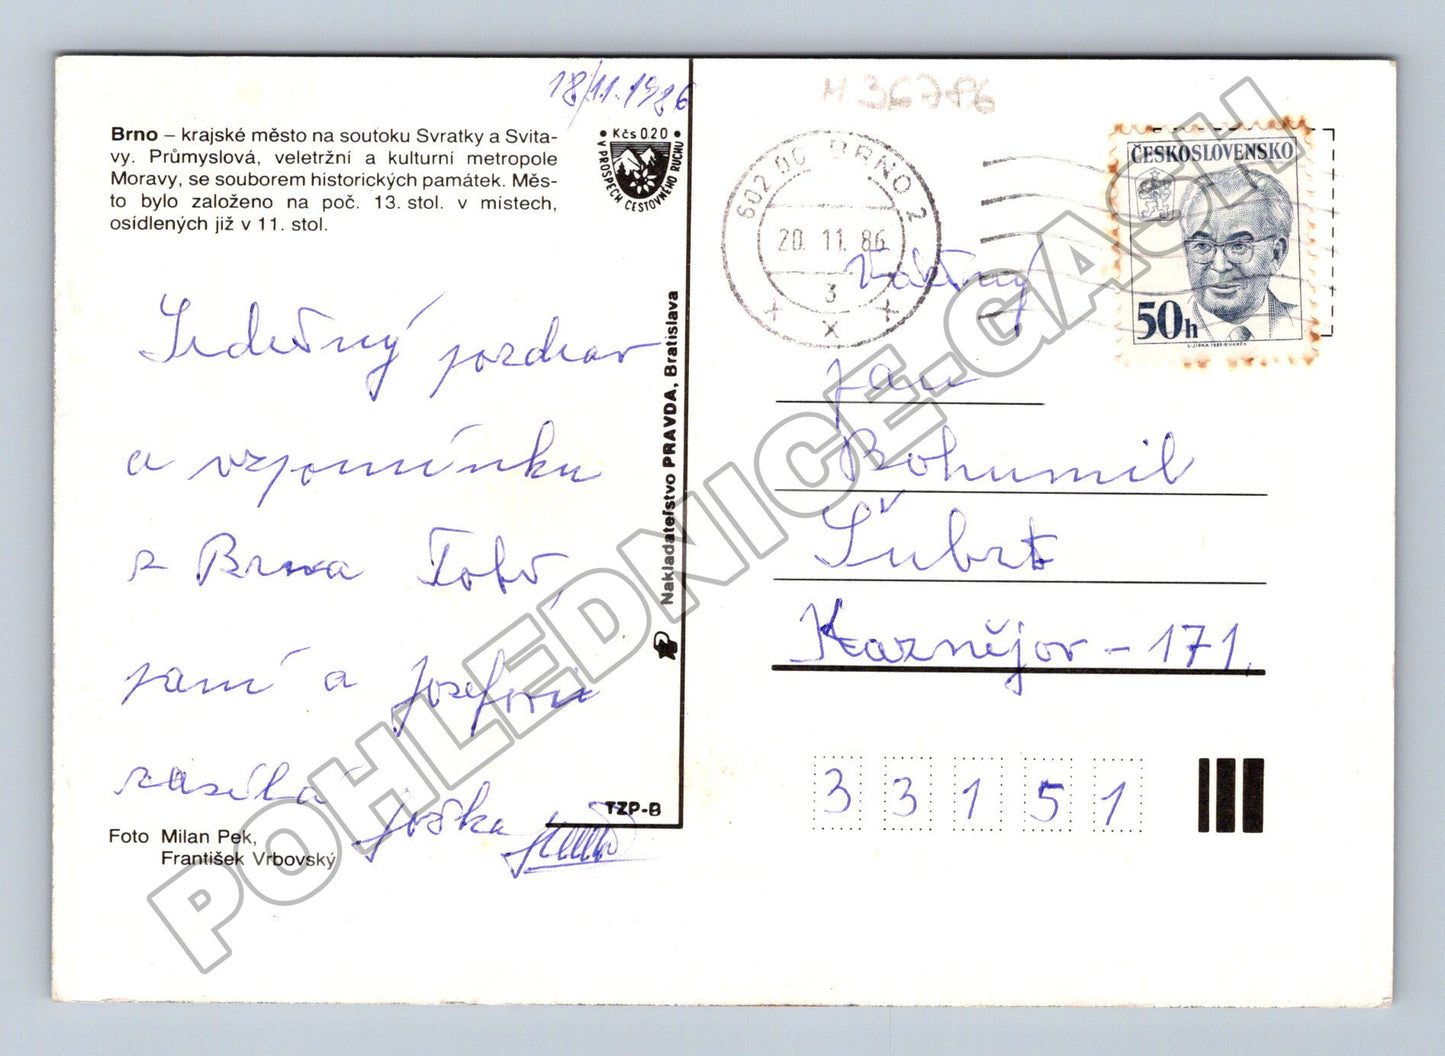 18/11.1986
M 36786
Brno – krajské město na soutoku Svratky a Svita-
vy. Průmyslová, veletržní a kulturní metropole
Moravy, se souborem historických památek. Měs-
to bylo založeno na poč. 13. stol. v místech,
osídlených již v 11. stol.
Kčs 0.20
V PROSPĚCH CESTOVNÉHO RUCHU
602 00 BRNO 2
20. 11. 86
3
x x x
ČESKOSLOVENSKO
50h
Srdečný pozdrav
a vzpomínku
z Brna Tobě
paní a Josefovi
zasílá Joška
Vážený
pan
Bohumil
Šubrt
Kaznějov - 171.
33151
Nakladateľstvo PRAVDA, Bratislava
TZP-B
Foto Milan Pek,
František Vrbovský
POHLEDNICE-GASH